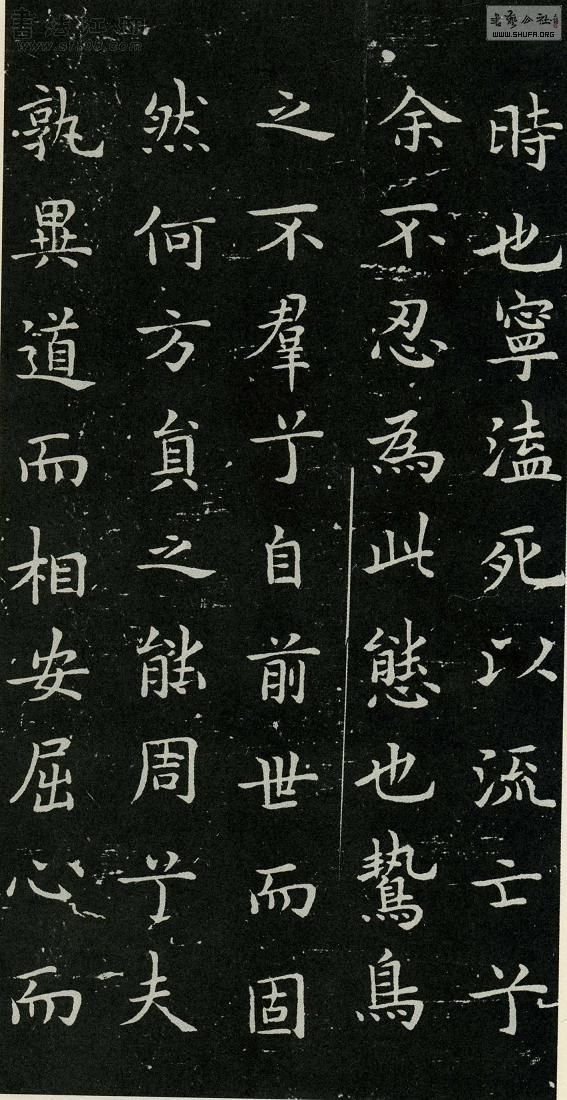 時也寧溘死以流亡兮
余不忍為此態也鷙鳥
之不羣兮自前世而固
然何方員之能周兮夫
孰異道而相安屈心而
書法江湖
www.sf108.com
書藝公社
WWW.SHUFA.ORG